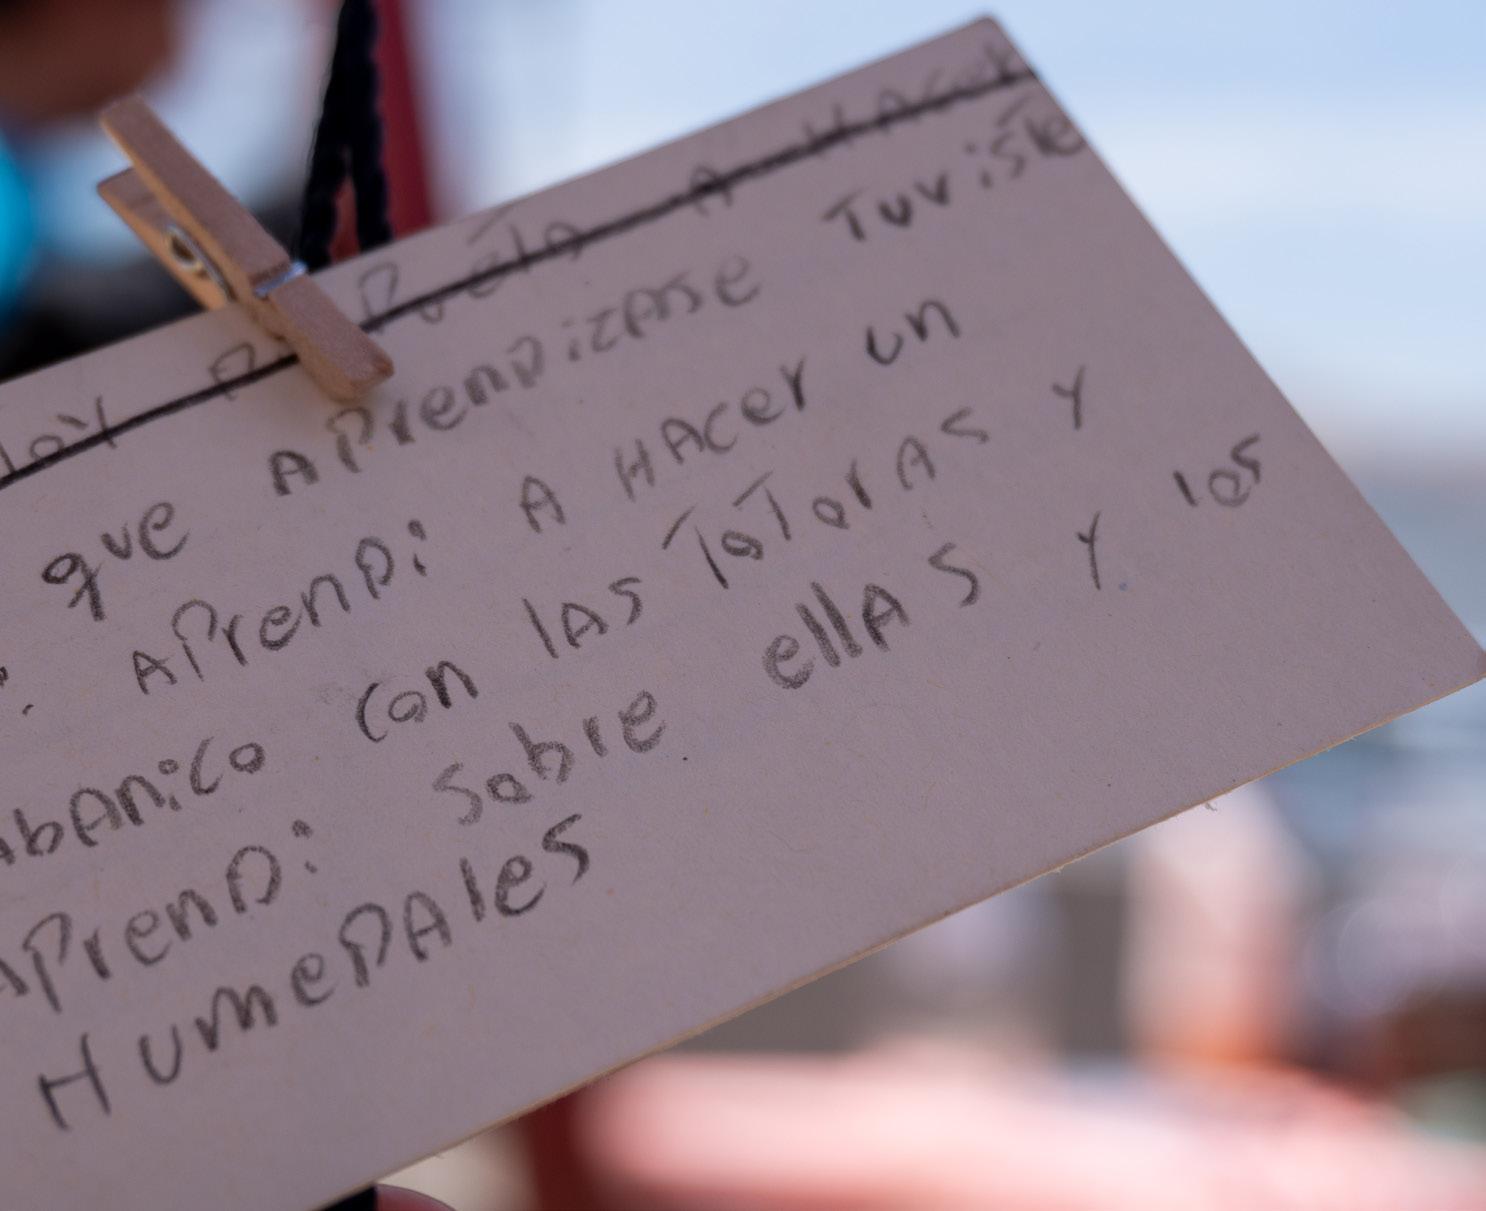 A HACER
que APrenDizAse TuvisTe
APrenDi A HACer un
AbAnico con lAs ToTorAs Y
APrenDi sobre ellAs Y los
HumeDAles